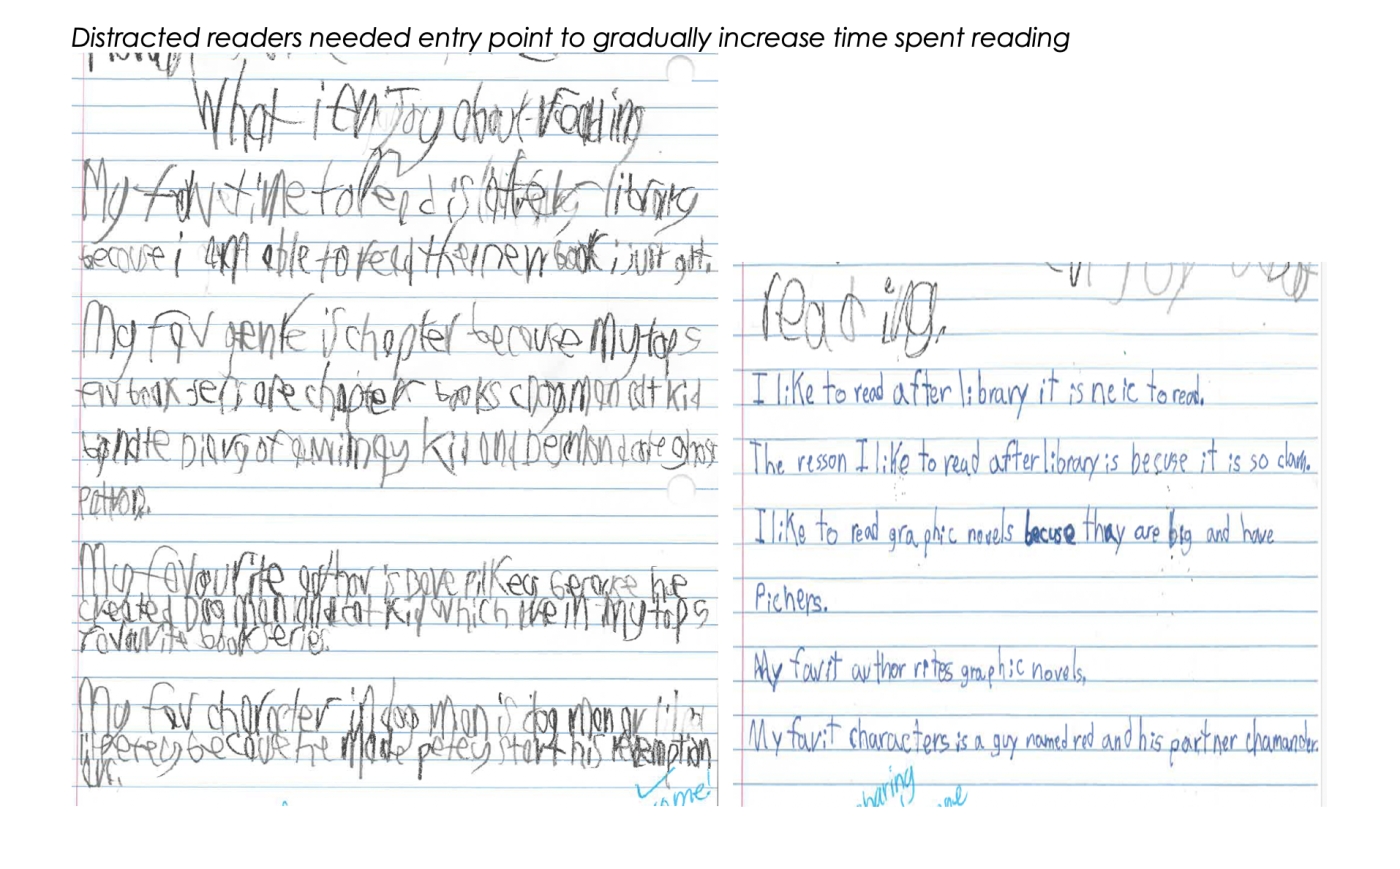 Distracted readers needed entry point to gradually increase time spent reading
What i enjoy about reading
My fav time to read is after library
becouse i am able to read the new book i just got.
My fav genre is chapter becouse My top 5
fav book sets are chapter books Dog man cat kid
Diary of a wimpy kid and Desmond cole ghost
patrol.
My favourite author is Dave pilkey because he
created Dog man and cat kid which are in My top 5
favourite book series.
My fav character in dog man is dog man or
petey because he made petey start his redemption
arc.
reading.
I like to read after library it is neic to read.
The resson I like to read after library is becuse it is so clam.
I like to read graphic novels becuse thay are big and have
Pichers.
My favit author rites graphic novels,
My favit characters is a guy named red and his partner chamander.
haring
me!